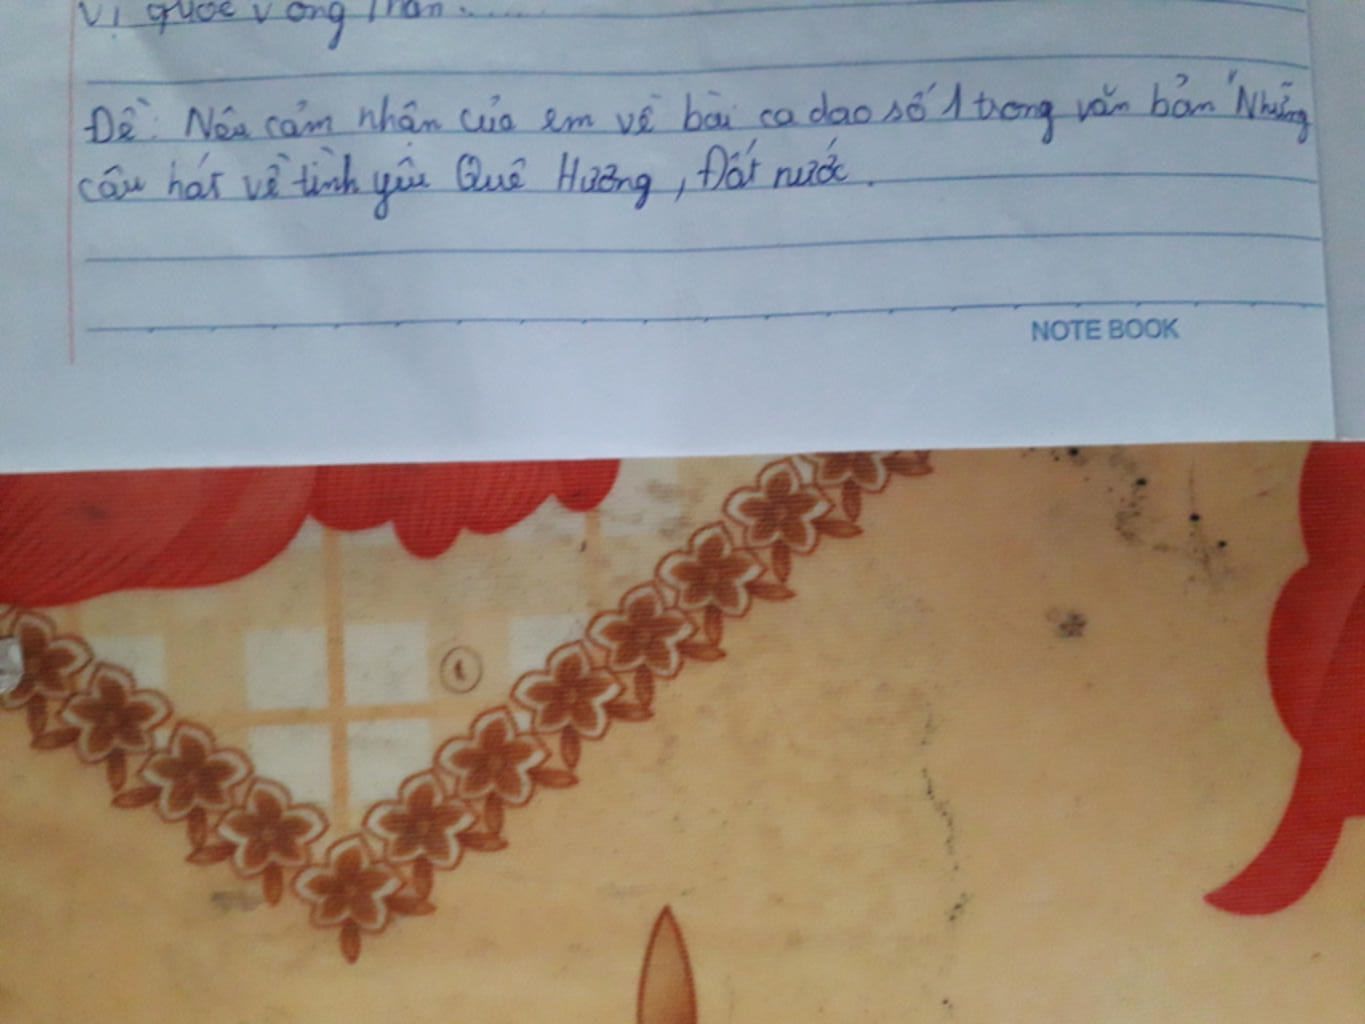 Vị quốc vong thân.....
Đề: Nêu cảm nhận của em về bài ca dao số 1 trong văn bản "Những
câu hát về tình yêu Quê Hương, Đất nước.
NOTE BOOK